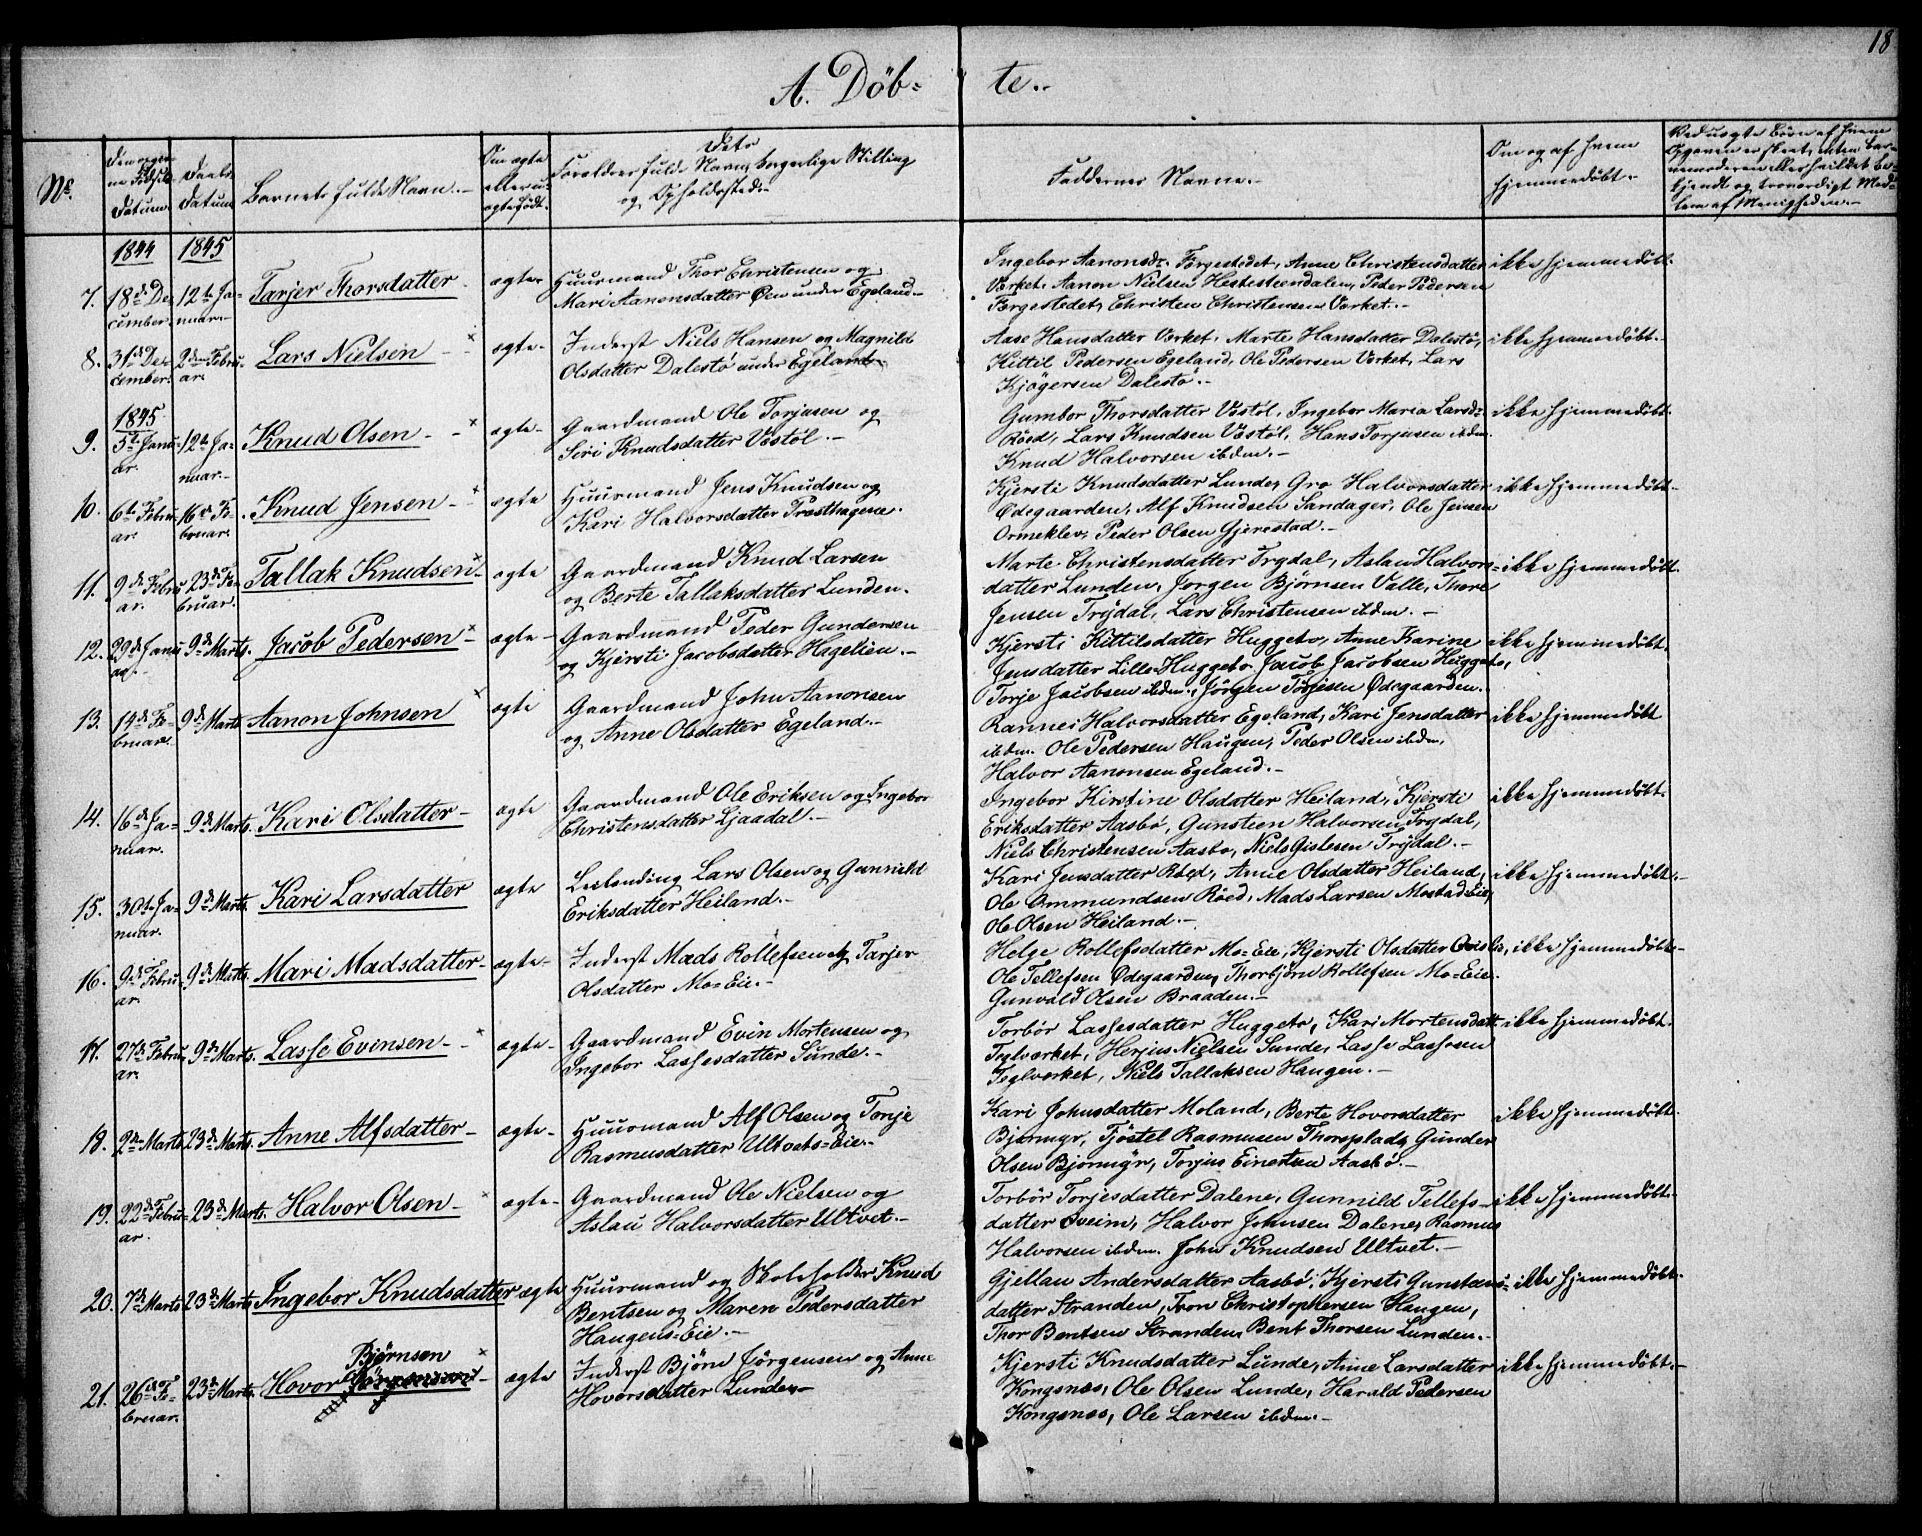 18
A. Döb= te.
Nº
Fødsels
Datum.
Daabs
Datum
Barnets fulde Navn.
Om ægte
eller u-
ægte født.
Dets
Forældres fulde Navn, borgerlige Stilling
og Opholdssted.
Faddernes Navne.
Om og af hvem
hjemmedøbt.
Ved uægte Børn af hvem
Opgaven er skeet,
lem af Menigheden.
1844 1845
7. 18de De-
cember. 12te Ja-
nuar. Tarjer Thorsdatter ægte Huurmand Thor Christensen og
Mari Aanonsdatter Øen under Egeland
Ingebor Aanonsdr. Førgestedet, Anne Christensdatter
Værket, Aanon Nielsen Hestesteendalen, Peder Pedersen
Førgestedet, Christen Christensen Værket.
ikke hjemmedøbt.
8. 31te De-
cember. 2den Febru-
ar. Lars Nielsen ægte Inderst Niels Hansen og Magnild
Olsdatter Dalestø under Egeland
Aase Hansdatter Værket, Marte Hansdatter Dalestø,
Kittil Pedersen Egeland, Ole Pedersen Værket, Lars
Kjøgersen Dalestø.
ikke hjemmedøbt.
1845
9. 5te Janu-
ar. 12te Ja-
nuar. Knud Olsen ægte Gaardmand Ole Torjusen og
Siri Knudsdatter Vestøl.
Gumbor Thorsdatter Vestøl, Ingebor Maria Larsdr
Røed, Lars Knudsen Vestøl, Hans Torjusen ibdm.
Knud Halvorsen ibdm.
ikke hjemmedøbt.
10. 6te Febru-
ar. 16de Fe-
bruar. Knud Jensen ægte Huurmand Jens Knudsen og
Kari Halvorsdatter Præsthagene.
Kjersti Knudsdatter Lunde, Gro Halvorsdatter
Ødegaarden, Alf Knudsen Sandager, Ole Jensen
Ormeklev, Peder Olsen Gjerestad.
ikke hjemmedøbt.
11. 9de Febru-
ar. 23de Fe-
bruar. Tallak Knudsen ægte Gaardmand Knud Larsen
og Berte Tallaksdatter Lunden.
Marte Christensdatter Trydal, Aslau Halvors-
datter Lunden, Jørgen Bjørnsen Valle, Thore
Jensen Trydal, Lars Christensen ibdm.
ikke hjemmedøbt.
12. 29de Janu-
ar. 9de Marts. Jacob Pedersen ægte Gaardmand Peder Gundersen
og Kjersti Jacobsdatter Hegelien.
Kjersti Kittilsdatter Huggeto, Anne Karine
Jensdatter Lille-Huggeto, Jacob Jacobsen Huggeto,
Torje Jacobsen ibdm., Jørgen Torjesen Ødegaarden.
ikke hjemmedøbt.
13. 14de Fe-
bruar. 9de Marts Aanon Johnsen ægte Gaardmand John Aanonsen
og Anne Olsdatter Egeland.
Rannei Halvorsdatter Egeland, Kari Jensdatter
ibdm. Ole Pedersen Haugen, Peder Olsen ibdm,
Halvor Aanonsen Egeland.
ikke hjemmedøbt
14. 16de Ja-
nuar. 9de Marts. Kari Olsdatter ægte Gaardmand Ole Eriksen og Ingebor
Christensdatter Ljaadal.
Ingebor Kirstine Olsdatter Heiland, Kjersti
Eriksdatter Aasbø, Gunsteen Halvorsen Trydal,
Niels Christensen Aasbø, Niels Gislesen Trydal.
ikke hjemmedøbt.
15. 30te Ja-
nuar. 9de Marts. Kari Larsdatter ægte Leilending Lars Olsen og Gunnild
Eriksdatter Heiland.
Kari Jensdatter Røed, Anne Olsdatter Heiland,
Ole Ommundsen Røed, Mads Larsen Mostad-Eie,
Ole Olsen Heiland.
ikke hjemmedøbt.
16. 9de Febru-
ar. 9de Marts. Mari Madsdatter ægte Inderst Mads Rollefsen og Tarjer
Olsdatter Mo-Eie.
Helge Rollefsdatter Mo-Eie, Kjersti Olsdatter
Ole Tellefsen Ødegaarden, Thorbjørn Rollefsen Mo-Eie
Gunvald Olsen Braaden.
ikke hjemmedøbt.
17. 27de Febru-
ar. 9de Marts. Lasse Evensen ægte Gaardmand Evin Mortensen og
Ingebor Lassesdatter Sunde.
Torbør Lassesdatter Huggeto, Kari Mortensdatt.
Teglværket, Herjus Nielsen Sunde, Lasse Lassesen
Teglværket, Niels Tallaksen Haugen.
ikke hjemmedøbt.
18. 2den Marts 23de Marts. Anne Alfsdatter ægte Huusmand Alf Olsen og Torje
Rasmusdatter Ultvets-Eie.
Kari Johnsdatter Moland, Berte Hovorsdatter
Bjørmyr, Tjøstel Rasmusen Thorsplads, Gunder
Olsen Bjørmyr, Torjus Einertsen Aasbø.
ikke hjemmedøbt.
19. 22de Febru-
ar. 23de Marts. Halvor Olsen ægte Gaardmand Ole Nielsen og
Aslau Halvorsdatter Ultvet.
Torbør Torjesdatter Dalene, Gunnild Tellefs-
datter Sveim, Halvor Johnsen Dalene, Rasmus
Halvorsen ibdm. John Knudsen Ultvet.
ikke hjemmedøbt.
20. 7de Marts 23de Marts. Ingebor Knudsdatter ægte Huurmand og Skoleholder Knud
Bentsen og Maren Pedersdatter
Haugens-Eie.
Gjellau Andersdatter Aasbø, Kjersti Gunstens-
datter Stranden, Tron Christophersen Haugen,
Thor Bentsen Stranden, Bent Thorsen Lunden.
ikke hjemmedøbt.
21. 26de Fe-
bruar. 23de Marts. Hovor Bjørnsen ægte Inderst Bjørn Jørgensen og Anne
Hovorsdatter Lunden
Kjersti Knudsdatter Lunde, Anne Larsdatter
Kongsnæs, Ole Olsen Lunde, Harald Pedersen
Kongsnæs, Ole Larsen ibdm.
ikke hjemmedøbt.